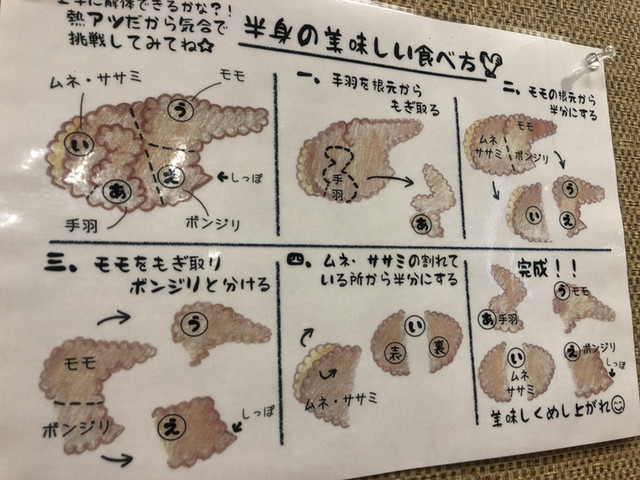 に解体できるかな?!
熱アツだから気合で
挑戦してみてね☆
半身の美味しい食べ方
ムネ・ササミ
モモ
い
う
あ
え
しっぽ
手羽
ボンジリ
一、手羽を根元から
もぎ取る
手羽
あ
二、モモの根元から
半分にする
モモ
ムネ
ササミ
ボンジリ
い
う
え
三、モモをもぎ取り
ボンジリと分ける
モモ
ボンジリ
う
え
しっぽ
四、ムネ・ササミの割れて
いる所から半分にする
ムネ・ササミ
い
表
裏
完成!!
あ手羽
うモモ
い
ムネ
ササミ
えボンジリ
しっぽ
美味しくめし上がれ☺